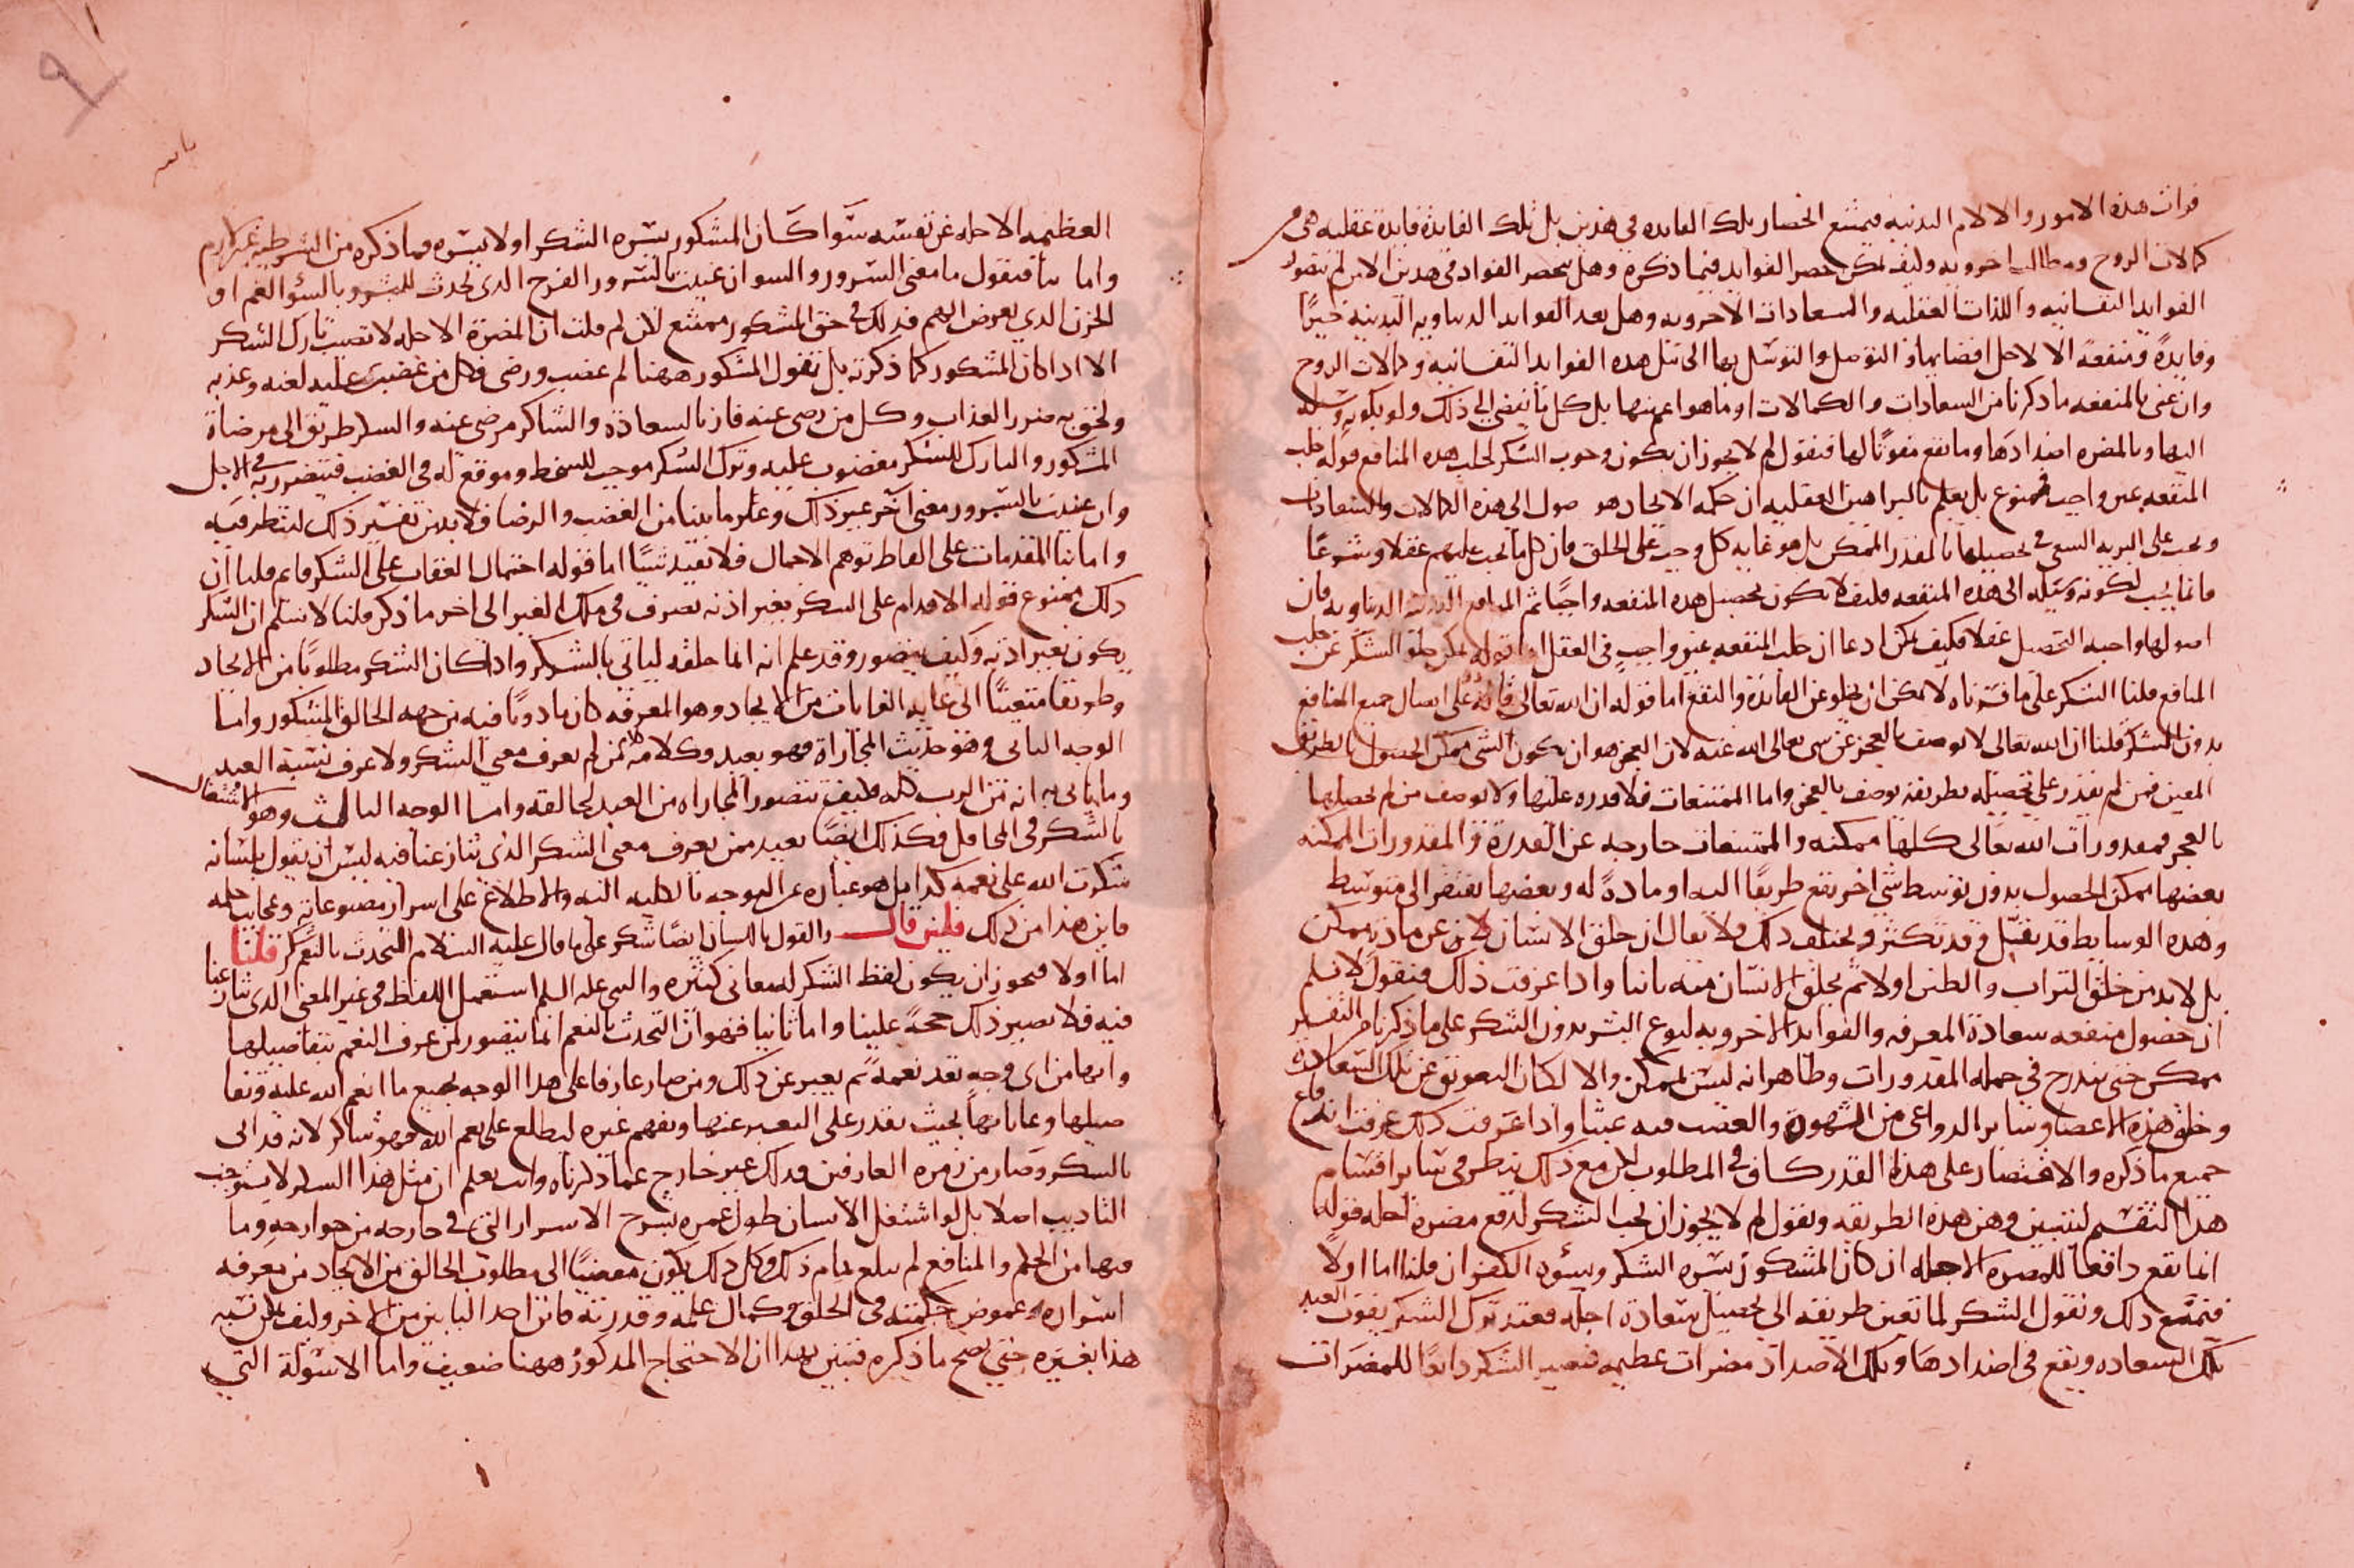 فوات هذه الامور والالام البدنيه فيمتنع انحصار تلك الفايده في هذين بل تلك الفايدة فايدة عقليه هي
كمالات الروح ومطالب اخرويه وكيف يمكن حصر الفوايد فيما ذكرة وهل ينحصر الفواد في هدين الا من لم يتصور
الفوايد النفسانيه واللذات العقليه والسعادات الاخرويه وهل يعد الفوايد الدنياويه البدنيه خيرًا
وفايدةً ومنفعةً الا لاجل افضايها او التوصل والتوسل بها الى مثل هده الفوايد النفسانيه وكمالات الروح
وان عنى بالمنفعه ما ذكرنا من السعادات والكمالات او ما هو اعم منها بل كل ما يفضي الى ذلك ولو بكونه وسيلة
اليها وبالمضره اضدادها وما يقع مفوتًا لها فنقول لم لا يجوز ان يكون وجوب الشكر لجلب هده المنافع قوله جلب
المنفعه غير واجب فممنوع بل يعلم بالبراهين العقليه ان حكمه الايجاد هو صول الى هذه الكمالات والسعادات
ويجب على البريه السعي في تحصيلها بالقدر الممكن بل هو غايه كل وجب على الخلق فان كل ما يجب عليهم عقلا وشرعًا
فانما يجب لكونه وسيله الى هذه المنفعه فكيف لا يكون تحصيل هده المنفعه واجبًا ثم المنافع البدنيه الدنياويه فان
اصولها واجبه التحصيل عقلا فكيف يمكن ادعا ان جلب المنفعه غير واجب في العقل اما قوله لا يمكن خلو الشكر عن جلب
المنافع قلنا الشكر على ما فسرناه لا يمكن ان يخلو عن الفائدة والنفع اما قوله ان الله تعالى قادر على ايصال جميع المنافع
بدون الشكر قلنا ان الله تعالى لا يوصف بالعجز عن شى تعالى الله عنه لان العجز هو ان يكون الشى ممكن الحصول بالطريق
المعين فمن لم يقدر على تحصيله بطريقه يوصف بالعجز واما الممتنعات فلا قدره عليها ولا يوصف من لم يحصلها
بالعجز فمقدورات الله تعالى كلها ممكنه والممتنعات خارجه عن القدرة والمقدورات الممكنه
بعضها ممكن الحصول بدون توسط شى اخر يقع طريقًا اليه او مادةً له وبعضها يفتقر الى متوسط
وهده الوسايط قد تقل وقد تكثر ويختلف ذلك ولا يقال ان خلق الانسان لا من عن مادة ممكن
بل لا بد من خلق التراب والطين اولا ثم يخلق الانسان منه ثانيا واذا عرفت ذلك فنقول لا نسلم
ان حصول منفعه سعادة المعرفه والفوايد الاخرويه لنوع البشر بدون الشكر على ما ذكرنا من التفسير
ممكن حتى يندرج في جمله المقدورات وظاهر انه ليس بممكن والا لكان التعويق عن تلك السعادة
وخلق هذه الاعضا وساير الدواعى من الشهوة والغضب فيه عبثا واذا عرفت ذلك عرفت اندفاع
جميع ما ذكره والاقتصار على هذا القدر كاف في المطلوب لكن مع ذلك ننظر في ساير اقسام
هذا التقسيم لنتبين وهن هذه الطريقه ونقول لم لا يجوز ان يجب الشكر لدفع مضرة اجله قوله
انما يقع دافعا للمضره الاجله ان كان المشكور يسره الشكر ويسؤه الكفران قلنا اما اولًا
فنمنع ذلك ونقول الشكر لما تعين طريقه الى تحصيل سعادة اجله فعند ترك الشكر يفوت العبد
تلك السعاده ويقع في اضدادها وتلك الاضداد مضرات عظيمه فيصير الشكر دافعًا للمضرات
العظيمه الاجله عن نفسه سوا كان المشكور يسره الشكر او لا يسره فما ذكره من الشرطيه غير لازم
واما ثانيا فنقول ما معنى السرور والسو ان عنيت بالسرور الفرح الدى يحدث للبشر وبالسؤ الغم او
الحزن الدي يعرض لهم فدلك في حق المشكور ممتنع لكن لم قلت ان المضرة الاجله لا تصيب تارك الشكر
الا اذا كان المشكور كما ذكرته بل نقول المشكور ههنا لم غضب ورضى فكل من غضب عليه لعنه وعذبه
ولحق به ضرر العذاب وكل من رضى عنه فاز بالسعادة والشاكر مرضي عنه والشكر طريق الى مرضاة
المشكور والتارك للشكر مغضوب عليه وترك الشكر موجب للسخط وموقع له في الغضب فيتضرر به في الاجل
وان عنيت بالسرور معنى آخر غير ذلك وغير ما بينا من الغضب والرضا فلا بد من تفسير ذلك لننظر فيه
واما بنا المقدمات على الفاظ توهم الاحمال فلا يفيد شيًا اما قوله احتمال العقاب على الشكر قايم قلنا ان
دلك ممنوع قوله الاقدام على الشكر بغير اذنه تصرف في ملك الغير الى اخر ما ذكر قلنا لا نسلم ان الشكر
يكون بغير اذنه وكيف يتصور وقد علم انه انما خلقه لياتي بالشكر واذا كان الشكر مطلوبًا من الايجاد
وطريقا متعينًا الى غايه الغايات من الايجاد وهو المعرفه كان ماذونًا فيه من جهه الخالق المشكور واما
الوجه الثانى وهو حديث المجازاة فهو بعيد وكلامه كمن لم يعرف معنى الشكر ولا عرف نسبة العبد
وما ياتى به انه من الرب كله فكيف يتصور المجازاه من العبد لخالقه واما الوجه الثالث وهو الاشتغال
بالشكر في المحافل فكذلك ايضًا بعيد ممن يعرف معنى الشكر الذى تنازعنا فيه ليس ان يقول بلسانه
شكرت الله على نعمه كدا بل هو عباره عن التوجه بالكليه اليه والاطلاع على اسرار مصنوعاته وعجايب خلقه
فاين هذا من ذلك فلئن قال والقول باللسان ايضًا شكر على ما قال عليه السلام التحدث بالنعم شكر قلنا
اما اولا فيجوز ان يكون لفظ الشكر له معانى كثيره والنبى عليه السلم استعمل اللفظ في غير المعنى الدى تنازعنا
فيه فلا يصير ذلك حجةً علينا واما ثانيا فهو ان التحدث بالنعم انما يتصور لمن عرف النعم بتفاصيلها
وانها من اى وجه تعد نعمةً ثم يعبر عن ذلك ومن صار عارفا على هدا الوجه بجميع ما انعم الله عليه وتفا
صيلها وغاياتها بحيث يقدر على التعبير عنها ويفهم غيره ليطلع على نعم الله فهو شاكر لانه قد اتى
بالشكر وصار من زمره العارفين ودلك غير خارج عما ذكرناه وانت تعلم ان مثل هذا الشكر لا يستوجب
التاديب اصلا بل لو اشتغل الانسان طول عمره بشرح الاسرار التى في جارحه من جوارحه وما
فيها من الحكم والمنافع لم يبلغ تمام ذلك وكل ذلك يكون مفضيًا الى مطلوب الخالق من الايجاد من معرفه
اسراره وغموض حكمته في الخلق وكمال علمه وقدرته فاين احد البابين من الاخر وكيف يمكن تشبيه
هذا بغيره حتى يصح ما ذكره فتبين بهدا ان الاحتجاج المدكور ههنا ضعيف واما الاسولة التي